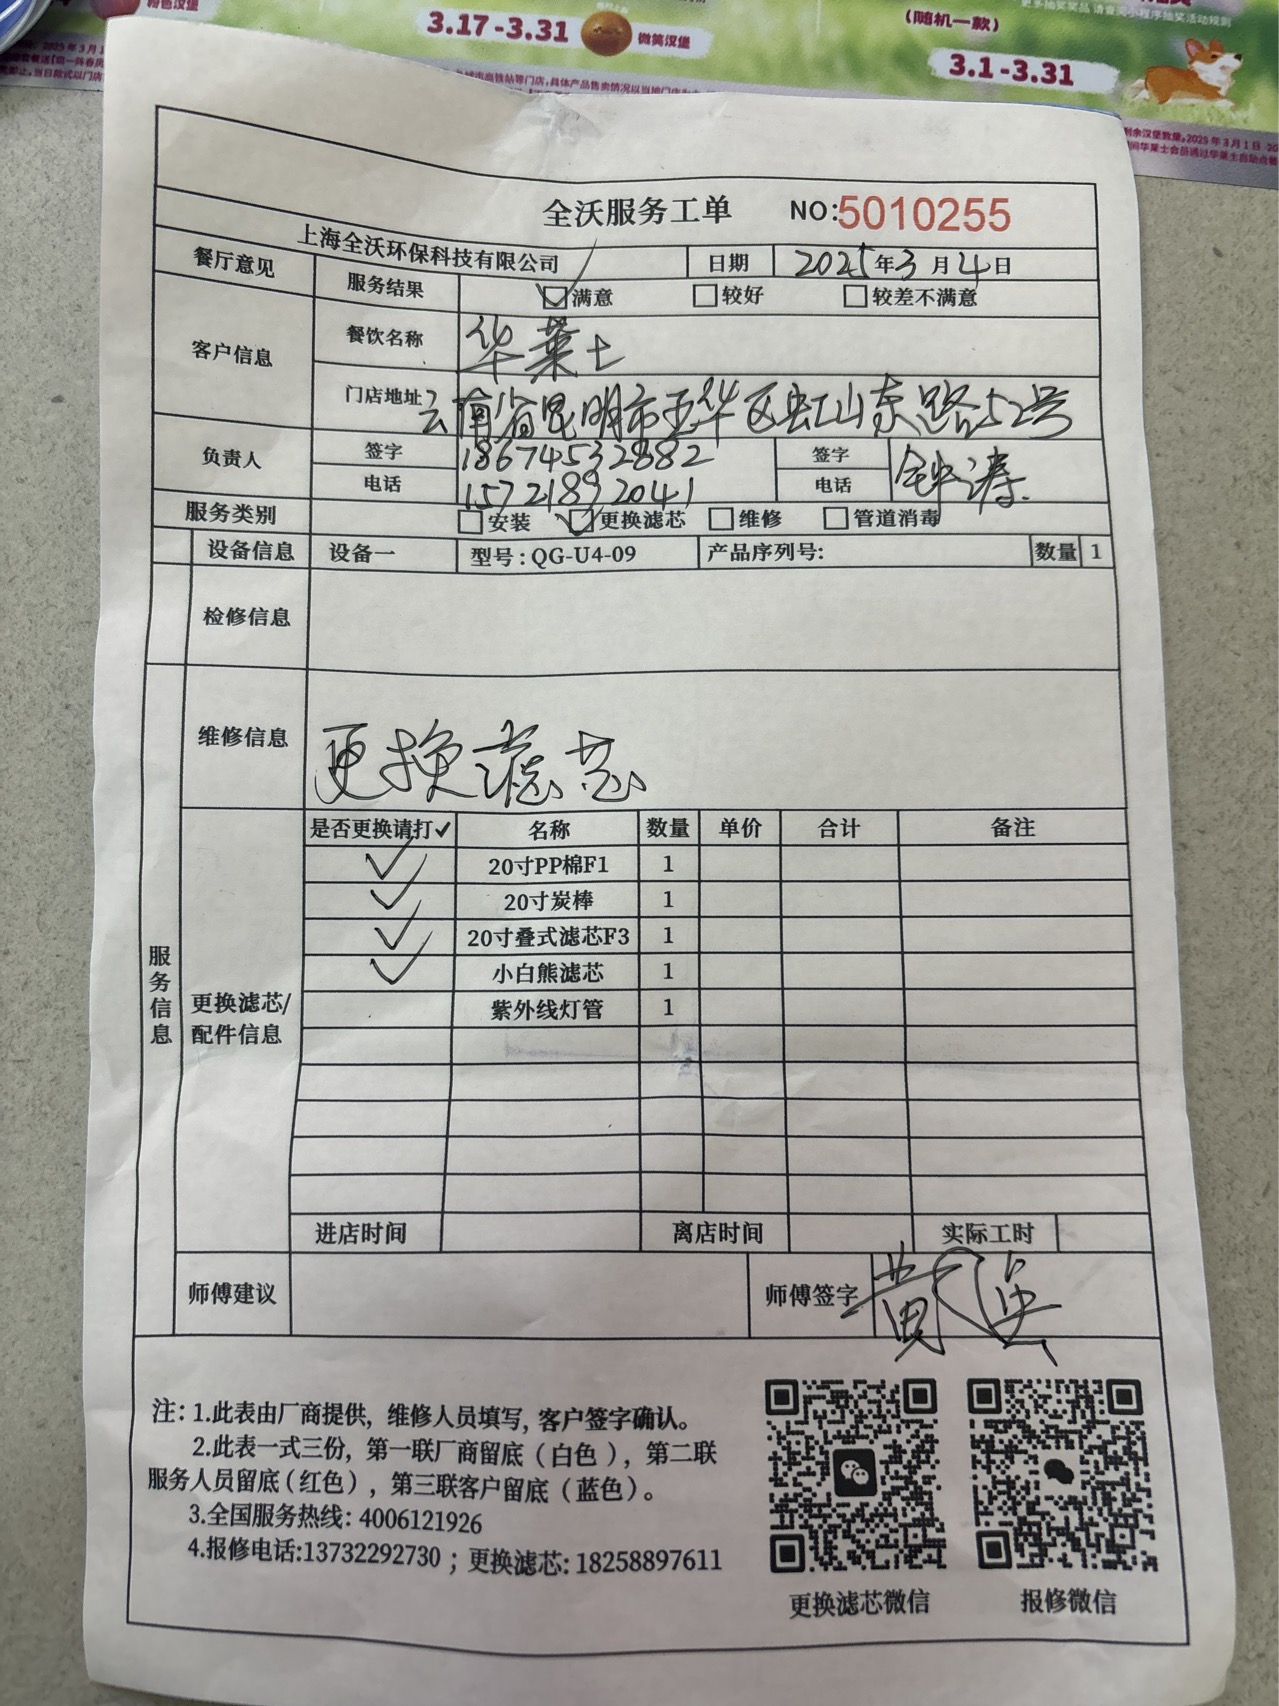 粉色汉堡
3.17-3.31
微笑汉堡
(随机一款)
3.1-3.31
全沃服务工单 NO:5010255
上海全沃环保科技有限公司 日期 2025年3月4日
餐厅意见 服务结果 满意 较好 较差不满意
客户信息 餐饮名称 华莱士
门店地址 云南省昆明市五华区虹山东路52号
负责人 签字 18674532882 签字
电话 15721892041 电话
服务类别 安装 更换滤芯 维修 管道消毒
设备信息 设备一 型号:QG-U4-09 产品序列号: 数量 1
检修信息
维修信息 更换滤芯
是否更换请打✓ 名称 数量 单价 合计 备注
20寸PP棉F1 1
20寸炭棒 1
20寸叠式滤芯F3 1
小白熊滤芯 1
紫外线灯管 1
服务信息
更换滤芯/
配件信息
进店时间 离店时间 实际工时
师傅建议 师傅签字
注: 1.此表由厂商提供, 维修人员填写, 客户签字确认。
2.此表一式三份, 第一联厂商留底(白色), 第二联
服务人员留底(红色), 第三联客户留底(蓝色)。
3.全国服务热线: 4006121926
4.报修电话:13732292730 ; 更换滤芯: 18258897611
更换滤芯微信 报修微信